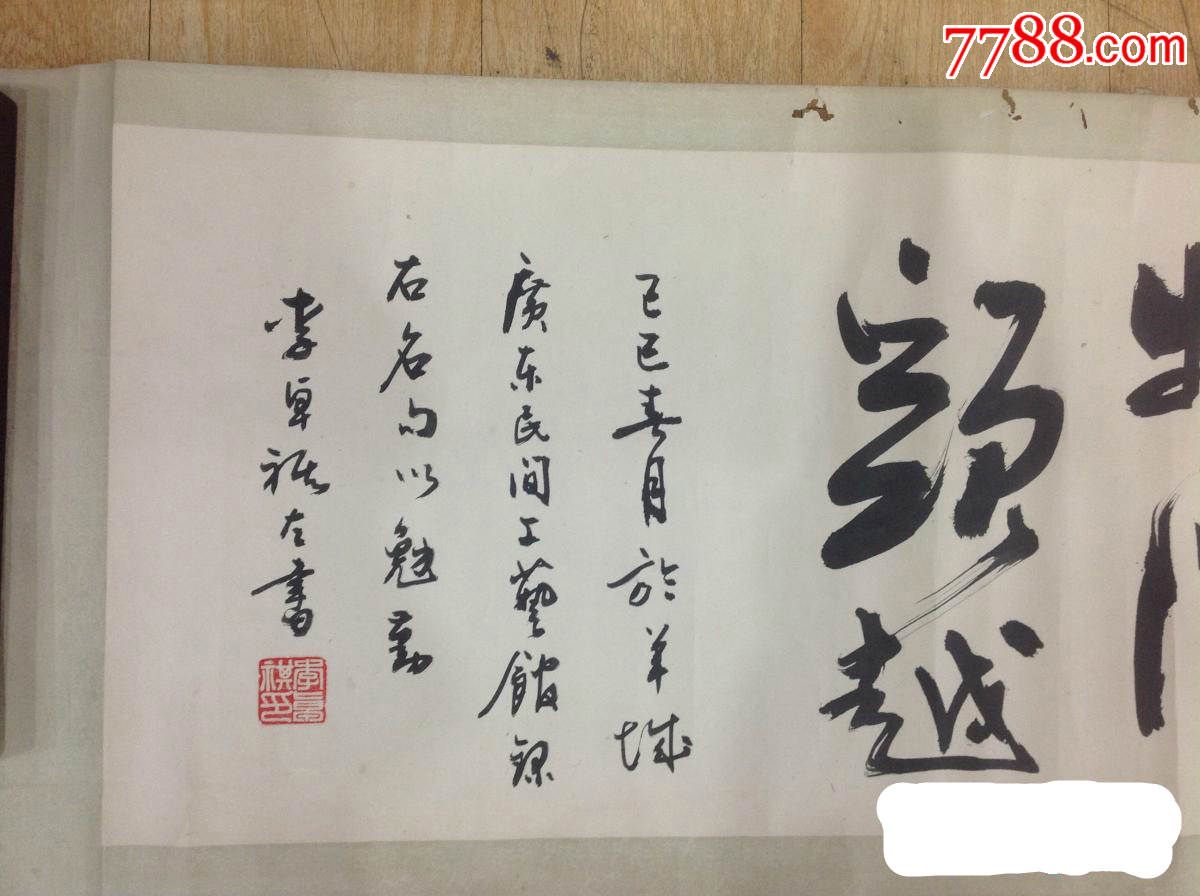 7788.com
頭越
己巳春月於羊城
廣东民间工藝館錄
右名句以勉勤
李卓祺左書
李卓祺印